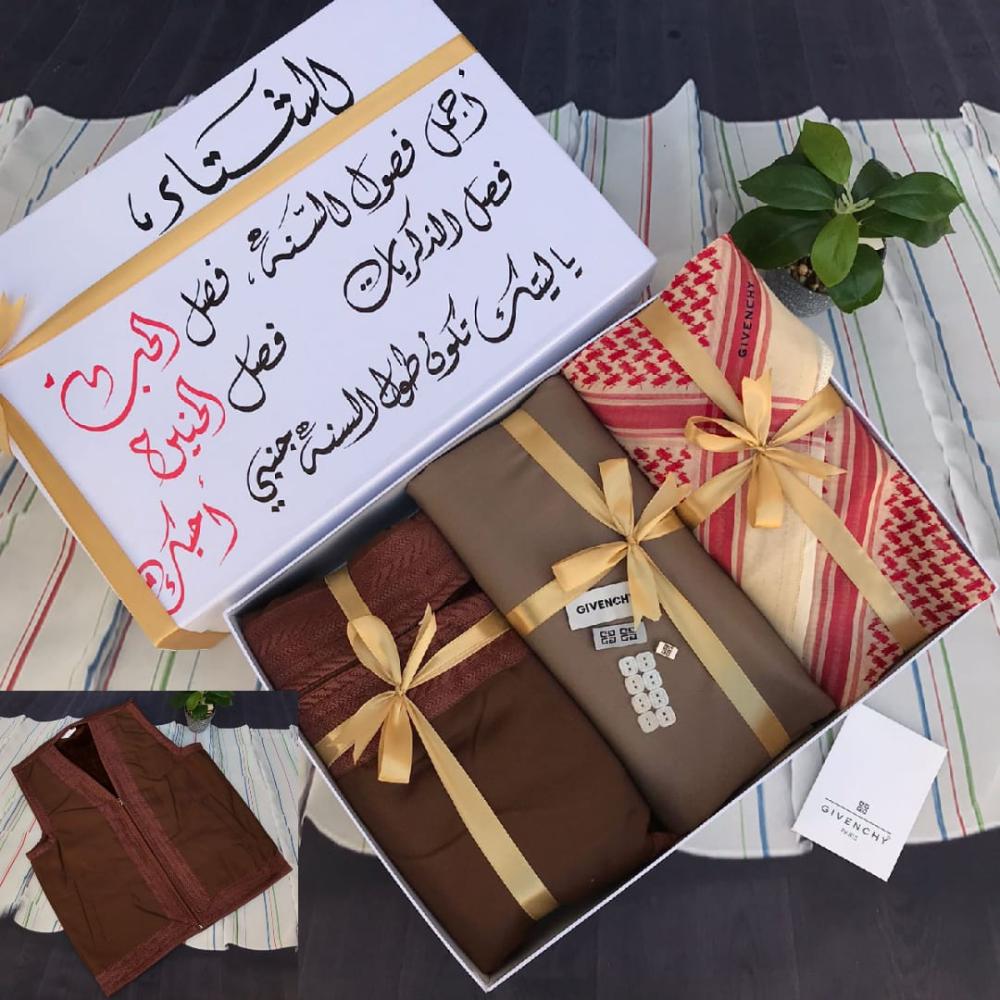 الشتاء
أجمل فصول السنة، فصل الحب
فصل الذكريات فصل الحنين
ياليتك تكون طول السنة جنبي أحبك
GIVENCHY
GIVENCHY
GIVENCHY
PARIS